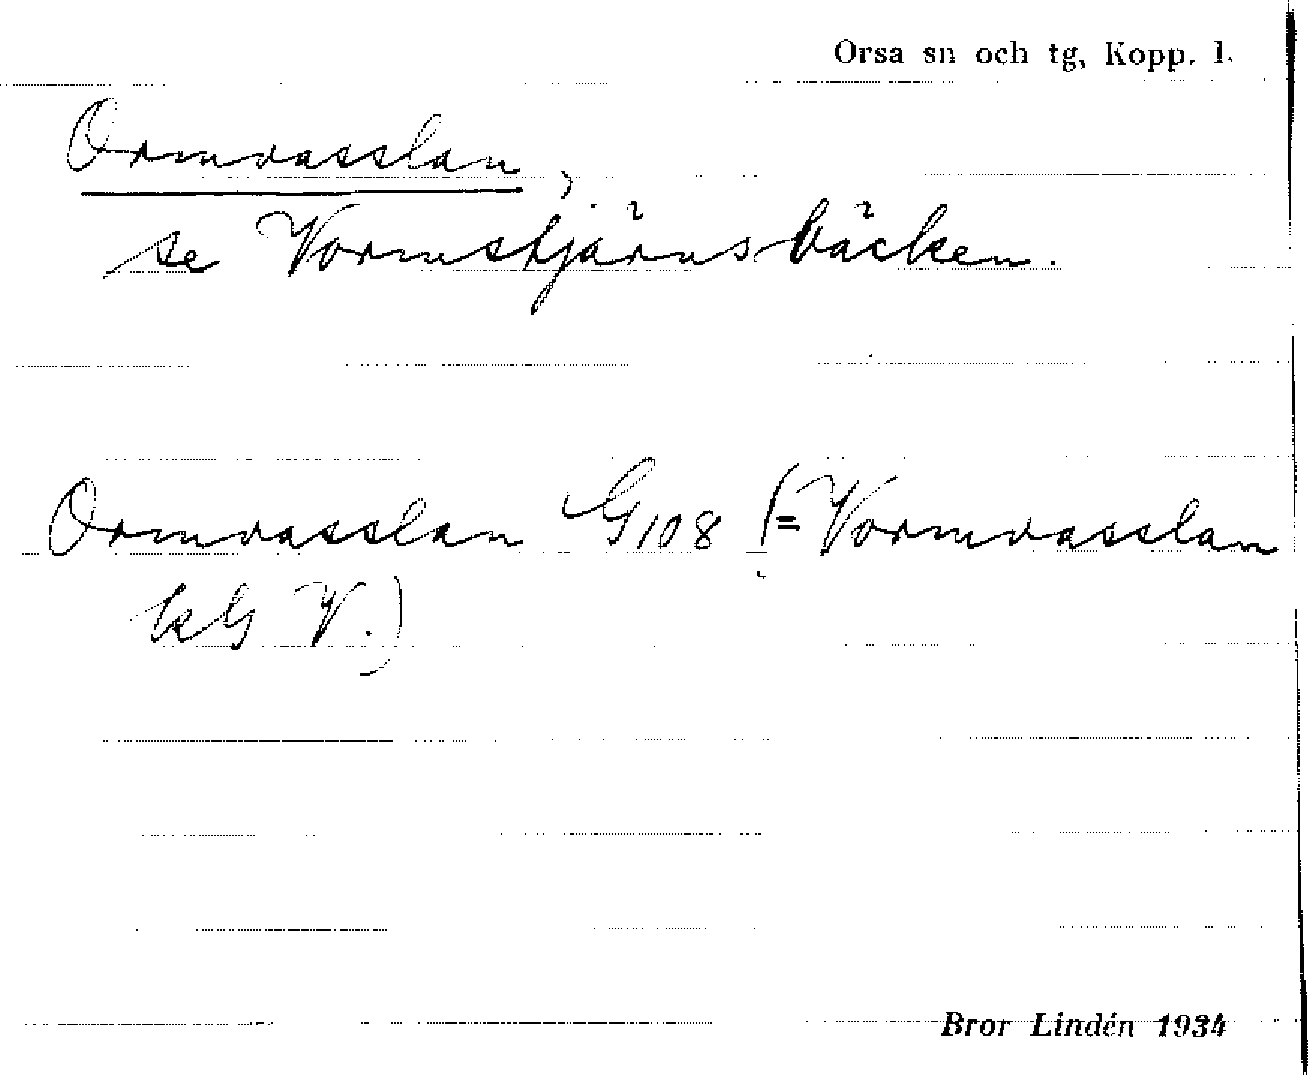 Orsa sn och tg, Kopp. l.
Ormvasslan,
se Vormstjärnsbäcken.
Ormvasslan G108 (= Vormvasslan
kG V.)
Bror Lindén 1934